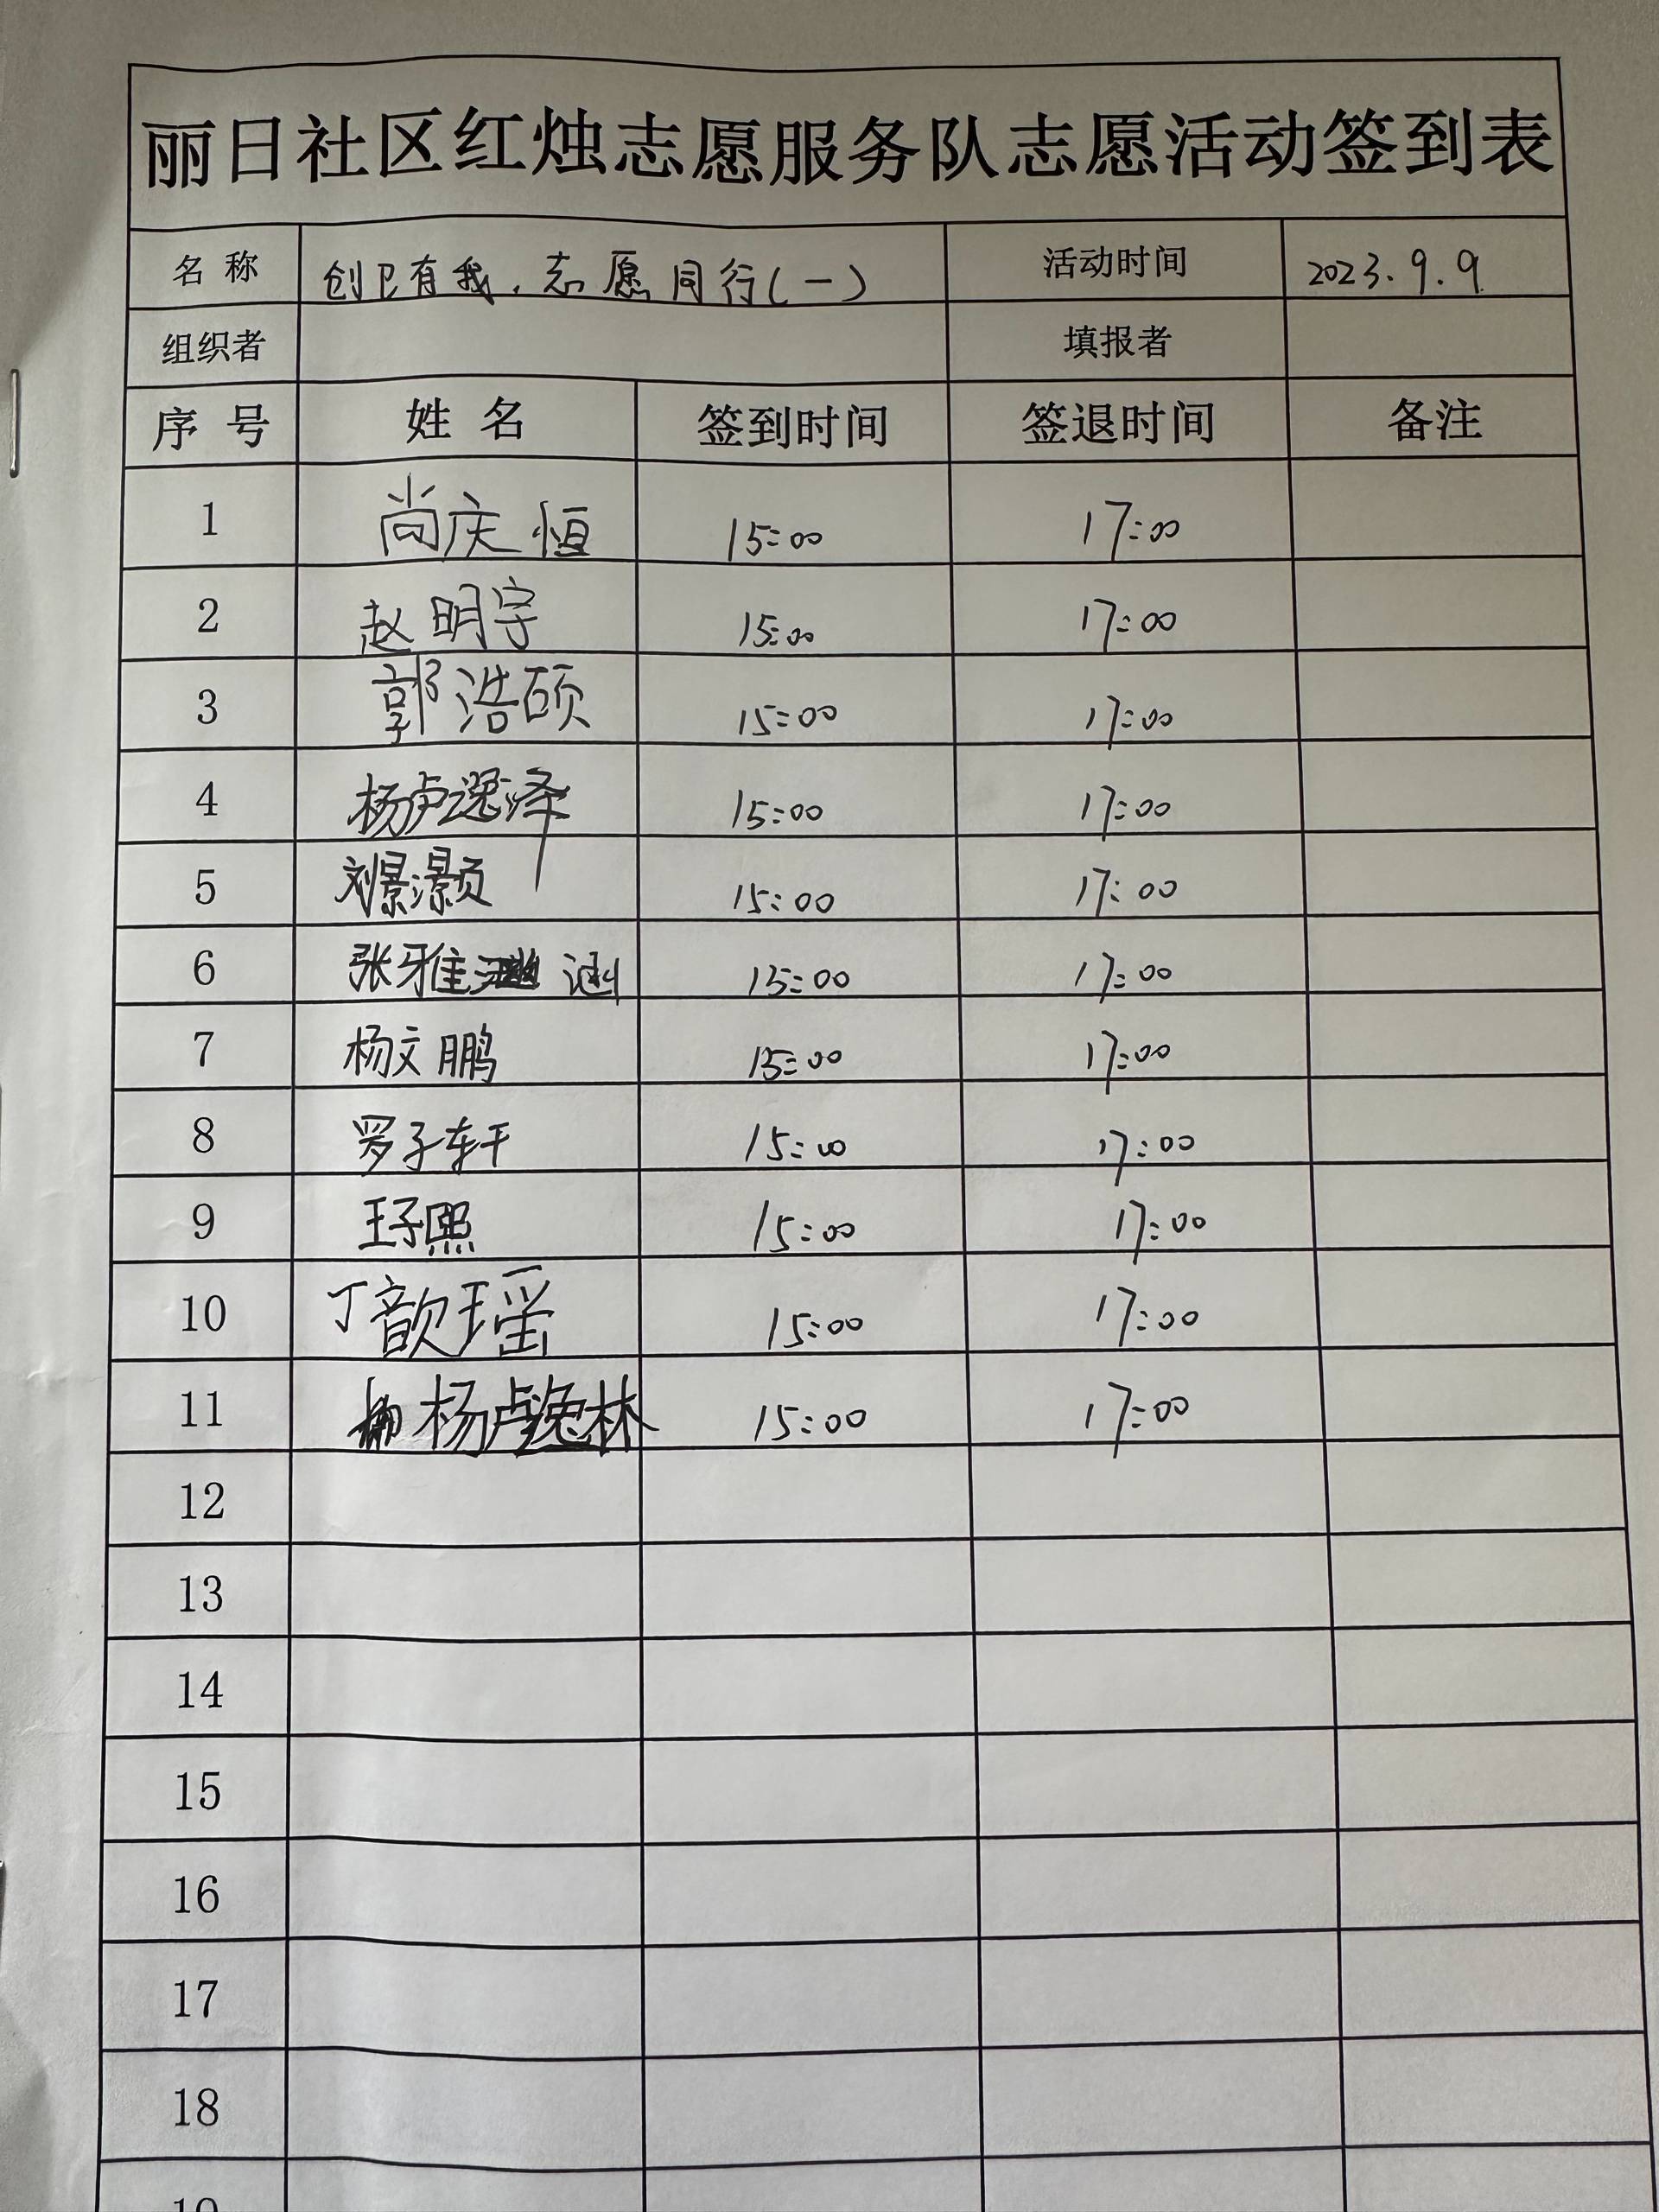 丽日社区红烛志愿服务队志愿活动签到表
名 称 创卫有我，志愿同行(一) 活动时间 2023.9.9
组织者 填报者
序 号 姓 名 签到时间 签退时间 备注
1 尚庆恒 15:00 17:00
2 赵明宇 15:00 17:00
3 郭浩硕 15:00 17:00
4 杨卢逸泽 15:00 17:00
5 刘景灏 15:00 17:00
6 张雅涵 15:00 17:00
7 杨文鹏 15:00 17:00
8 罗子轩 15:00 17:00
9 王子熙 15:00 17:00
10 丁歆瑶 15:00 17:00
11 杨卢逸林 15:00 17:00
12
13
14
15
16
17
18
19